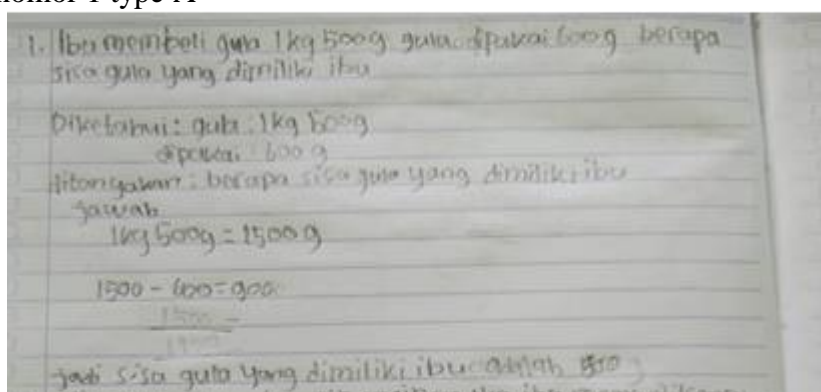 nomor 1 type A
1. Ibu membeli gula 1kg 500g gula dipakai 600g berapa
sisa gula yang dimiliki ibu
Diketahui: gula: 1kg 500g
dipakai 600 g
ditanyakan: berapa sisa gula yang dimiliki ibu
jawab
1kg 500g = 1500 g
1500 - 600 = 900
Jadi sisa gula yang dimiliki ibu adalah